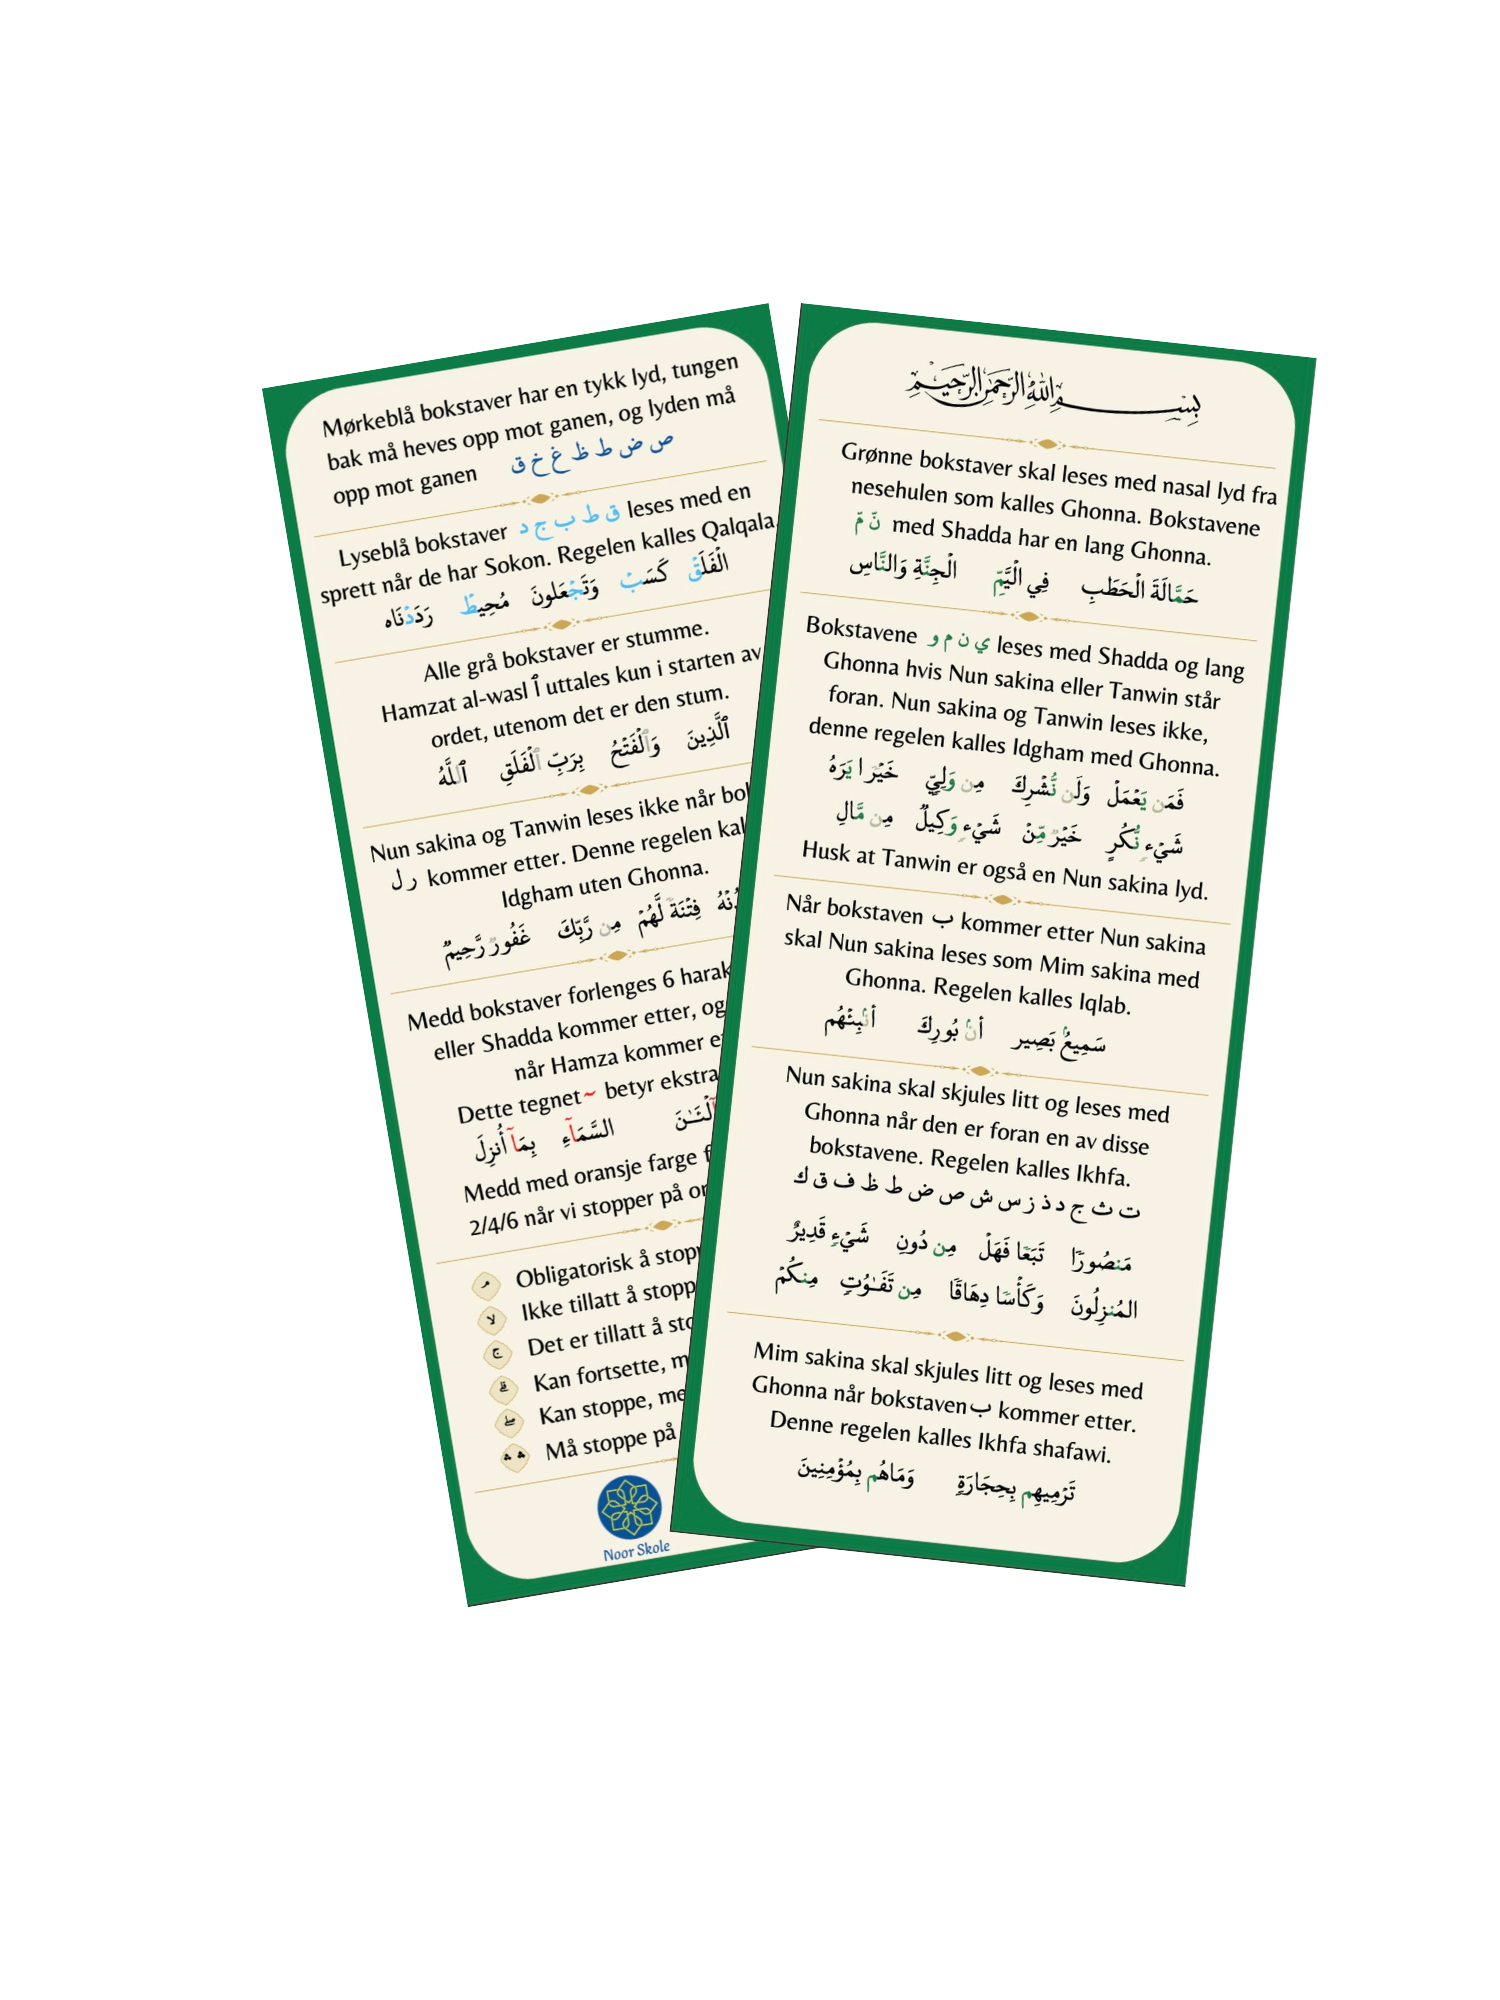 Mørkeblå bokstaver har en tykk lyd, tungen
bak må heves opp mot ganen, og lyden må
opp mot ganen ص ض ط ظ غ خ ق
Lyseblå bokstaver ق ط ب ج د leses med en
sprett når de har Sokon. Regelen kalles Qalqala.
الْفَلَقْ كَسَبْ وَتَجْعَلونَ مُحِيطْ رَدَدْنَاه
Alle grå bokstaver er stumme.
Hamzat al-wasl ٱ uttales kun i starten av
ordet, utenom det er den stum.
ٱلَّذِينَ وَٱلْفَتْحُ بِرَبِّ ٱلْفَلَقِ ٱللَّهُ
Nun sakina og Tanwin leses ikke når
ر ل kommer etter. Denne regelen
Idgham uten Ghonna.
فِتْنَةً لَّهُمْ مِن رَّبِّكَ غَفُورٌ رَّحِيمٌ
Medd bokstaver forlenges 6
eller Shadda kommer etter, og
når Hamza kommer
Dette tegnet ~ betyr ekstra
السَّمَآءِ بِمَآ أُنزِلَ
Medd med oransje farge
2/4/6 når vi stopper på
م Obligatorisk å
لا Ikke tillatt å
ج Det er tillatt å
قلے Kan fortsette,
صلے Kan stoppe,
Må stoppe på
Noor Skole
بِسْمِ اللهِ الرَّحْمٰنِ الرَّحِيمِ
Grønne bokstaver skal leses med nasal lyd fra
nesehulen som kalles Ghonna. Bokstavene
نّ مّ med Shadda har en lang Ghonna.
حَمَّالَةَ الْحَطَبِ فِي الْيَمِّ الْجِنَّةِ وَالنَّاسِ
Bokstavene ي ن م و leses med Shadda og lang
Ghonna hvis Nun sakina eller Tanwin står
foran. Nun sakina og Tanwin leses ikke,
denne regelen kalles Idgham med Ghonna.
فَمَن يَعْمَلْ وَلَن نُّشْرِكَ مِن وَلِيٍّ خَيْرًا يَرَهُ
شَيْءٍ نُّكُرٍ خَيْرٌ مِّنْ شَيْءٍ وَكِيلٌ مِن مَّالِ
Husk at Tanwin er også en Nun sakina lyd.
Når bokstaven ب kommer etter Nun sakina
skal Nun sakina leses som Mim sakina med
Ghonna. Regelen kalles Iqlab.
سَمِيعٌۢ بَصِير أنۢ بُورِكَ أنۢبِئْهُم
Nun sakina skal skjules litt og leses med
Ghonna når den er foran en av disse
bokstavene. Regelen kalles Ikhfa.
ت ث ج د ذ ز س ش ص ض ط ظ ف ق ك
مَنصُورًا تَبَعًا فَهَلْ مِن دُونِ شَيْءٍ قَدِيرٌ
المُنزِلُونَ وَكَأْسًا دِهَاقًا مِن تَفَـٰوُتٍ مِنكُمْ
Mim sakina skal skjules litt og leses med
Ghonna når bokstaven ب kommer etter.
Denne regelen kalles Ikhfa shafawi.
تَرْمِيهِم بِحِجَارَةٍ وَمَاهُم بِمُؤْمِنِينَ